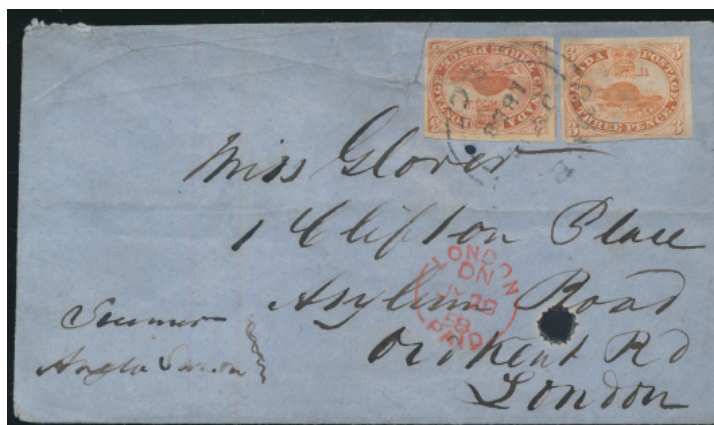 CANADA POSTAGE
THREE PENCE
3 3
CANADA POSTAGE
THREE PENCE
3 3
Miss Glover
1 Clifton Place
Asylum Road
Old Kent Rd
London
LONDON
PAID
Steamer
Anglo Saxon